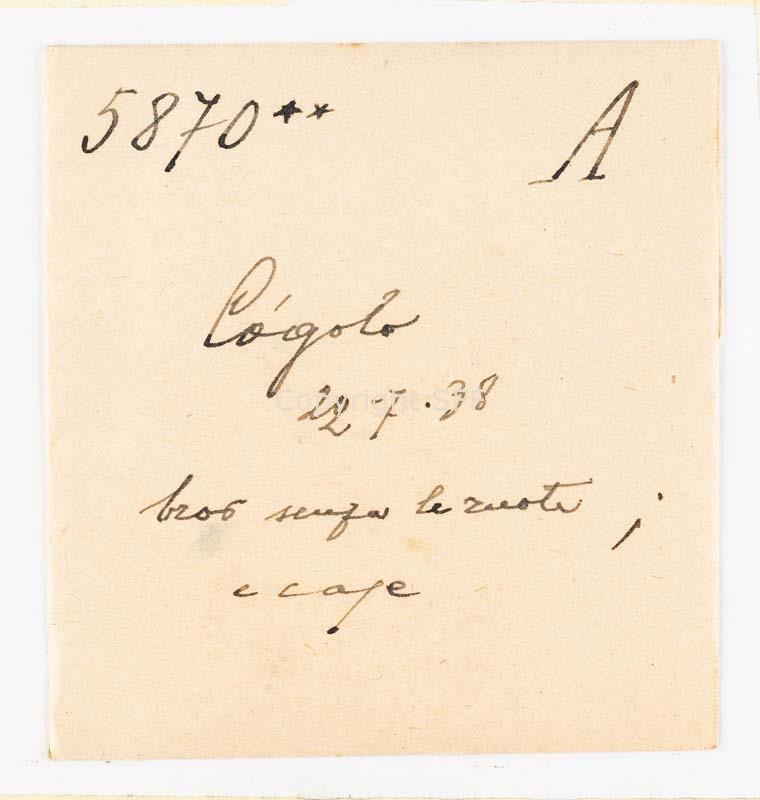 5870** A
Cógolo
22 7.38
broś senza le ruote ;
e case